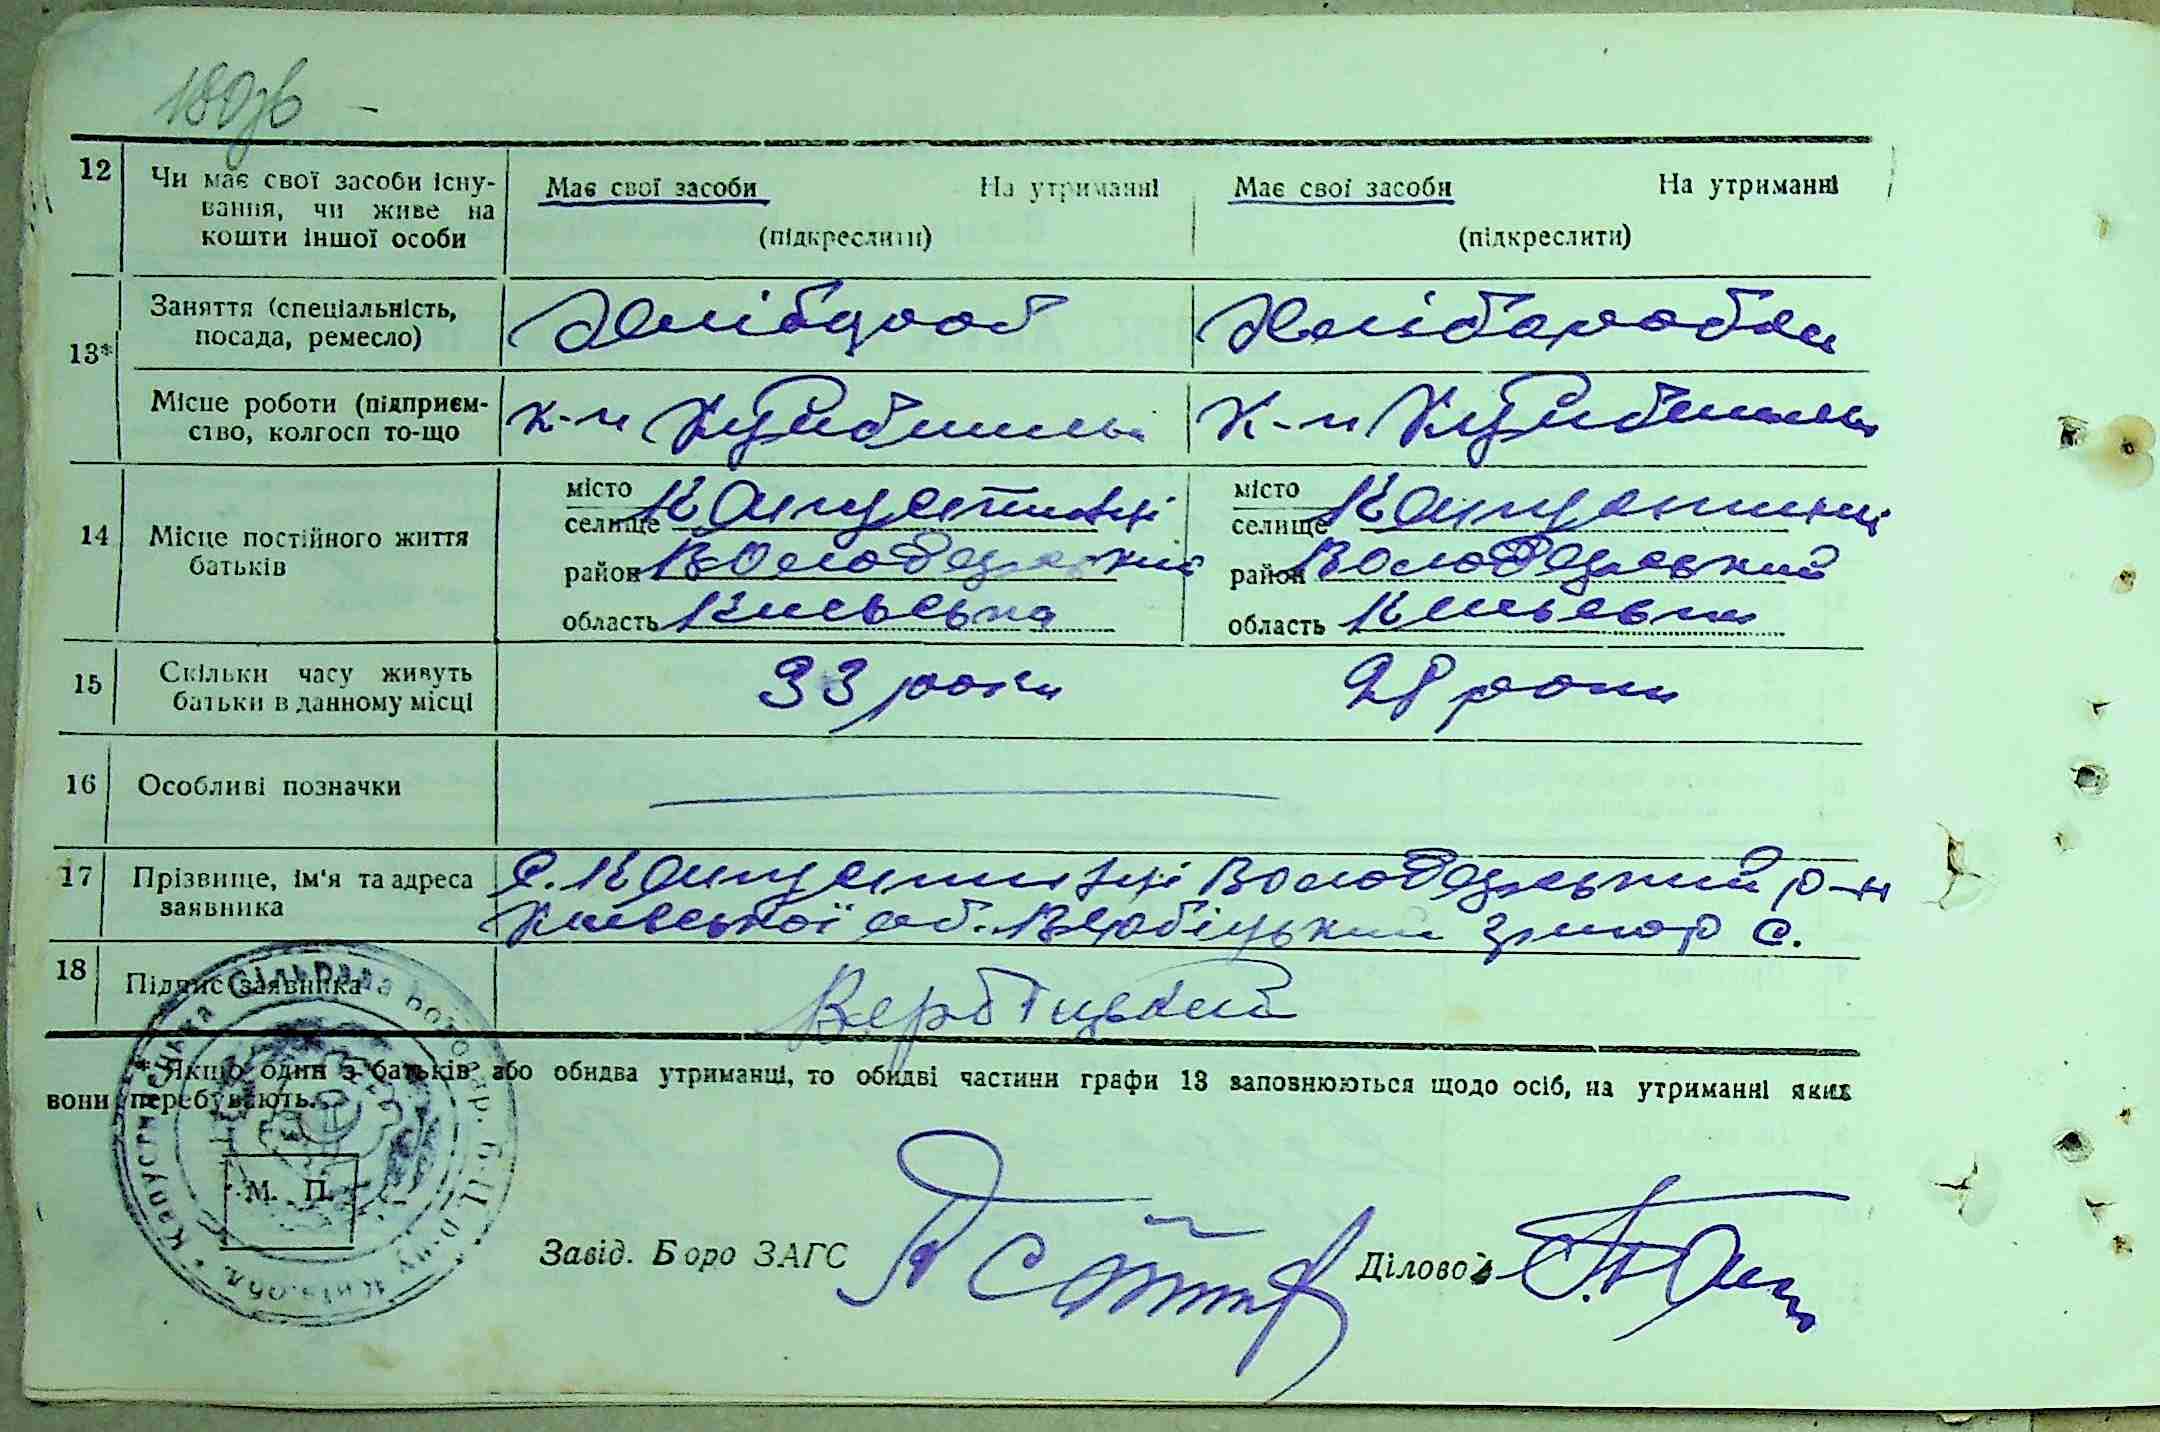 180зв
12 Чи має свої засоби існу- Має свої засоби На утриманні Має свої засоби На утриманні
вання, чи живе на
кошти іншої особи (підкреслити) (підкреслити)
Заняття (спеціальність, Хлібороб Хлібороб
13* посада, ремесло)
Місце роботи (підприєм- к-п Куйбишева К-п Куйбишева
ство, колгосп то-що
місто Капустинці місто Капустинці
селище селище
14 Місце постійного життя
батьків район Володарський район Володарський
область Київська область Київська
15 Скільки часу живуть 33 роки 28 роки
батьки в данному місці
16 Особливі позначки
17 Прізвище, ім'я та адреса С. Капустинці Володарський р-н
заявника Київської об. Вербіцький Григор С.
18 Підпис заявника Вербіцький
* Якщо один з батьків або обидва утриманці, то обидві частини графи 13 заповнюються щодо осіб, на утриманні яких
вони перебувають.
М. П.
Завід. Боро ЗАГС Діловод